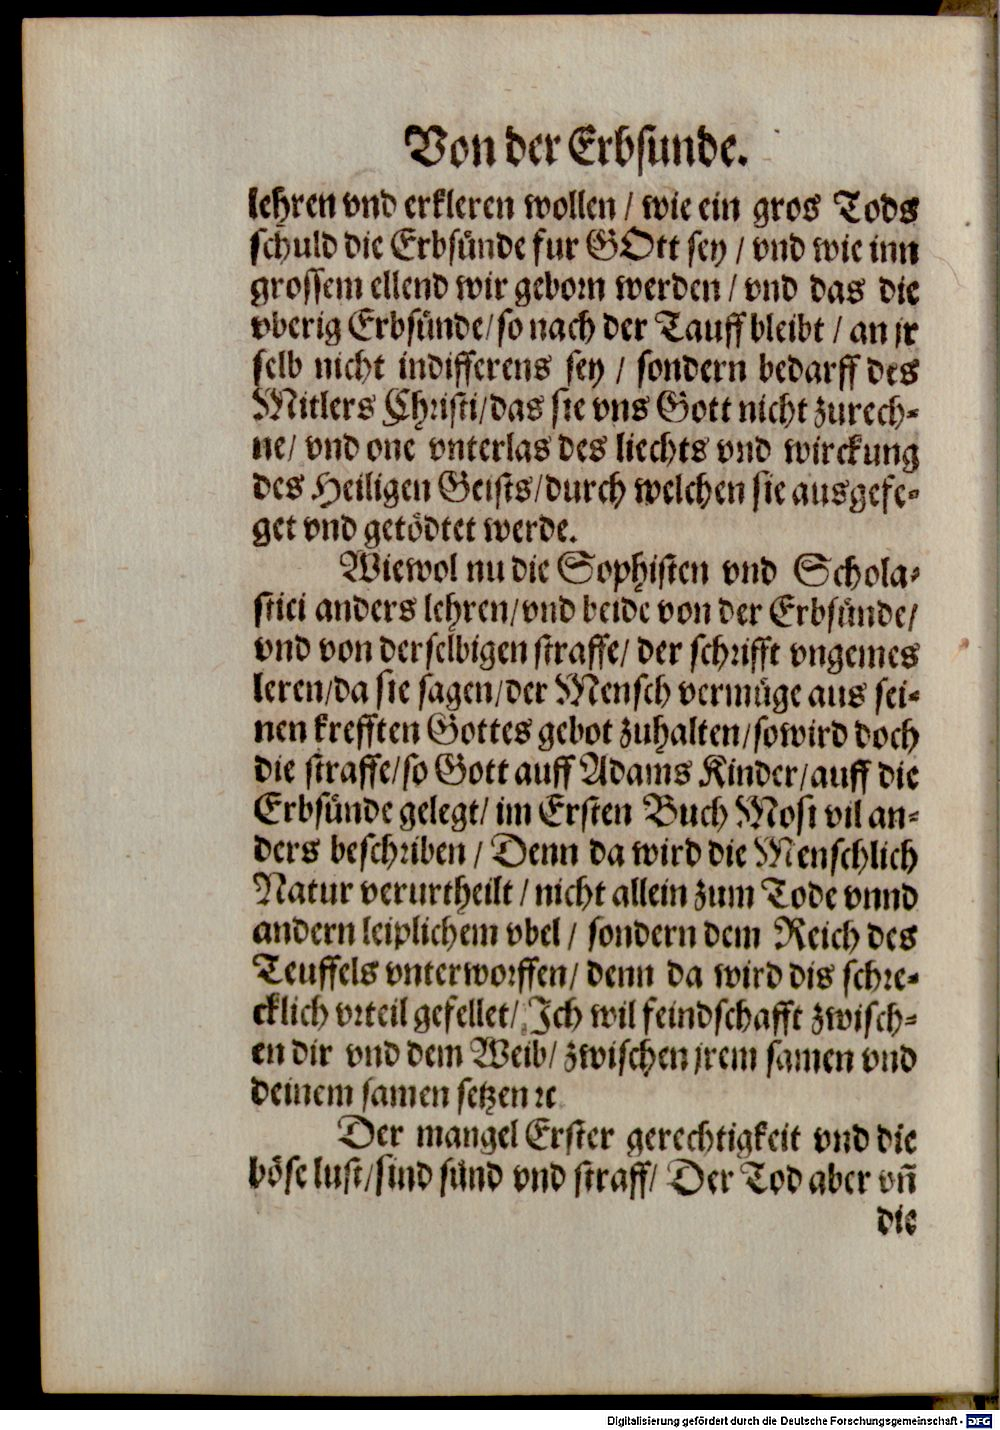 Von der Erbsunde.
lehren vnd erkleren wollen / wie ein gros Tods
schuld die Erbsünde fur GOtt sey / vnd wie inn
grossem ellend wir geborn werden / vnd das die
vberig Erbsünde/so nach der Tauff bleibt / an jr
selb nicht indifferens sey / sondern bedarff des
Mitlers Christi/das sie vns Gott nicht zurech-
ne/ vnd one vnterlas des liechts vnd wirckung
des Heiligen Geists/durch welchen sie ausgefe-
get vnd getödtet werde.
Wiewol nu die Sophisten vnd Schola-
stici anders lehren/vnd beide von der Erbsünde/
vnd von derselbigen straffe/ der schrifft vngemes
leren/da sie sagen/der Mensch vermüge aus sei-
nen krefften Gottes gebot zuhalten/sowird doch
die straffe/so Gott auff Adams Kinder/auff die
Erbsünde gelegt/ im Ersten Buch Mosi vil an-
ders beschriben / Denn da wird die Menschlich
Natur verurtheilt / nicht allein zum Tode vnnd
andern leiplichem vbel / sondern dem Reich des
Teuffels vnterworffen/ denn da wird dis schre-
cklich vrteil gefellet/ Ich wil feindschafft zwisch-
en dir vnd dem Weib/ zwischen jrem samen vnd
deinem samen setzen ꝛc
Der mangel Erster gerechtigkeit vnd die
böse lust/sind sünd vnd straff/ Der Tod aber vñ
die
Digitalisierung gefördert durch die Deutsche Forschungsgemeinschaft - DFG